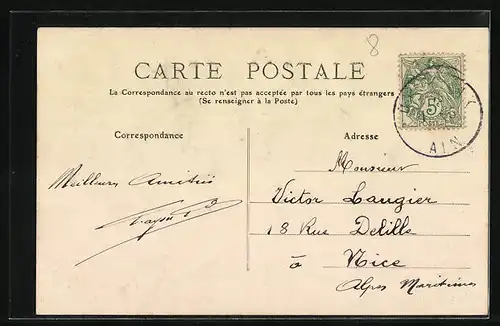 8
CARTE POSTALE
La Correspondance au recto n'est pas acceptée par tous les pays étrangers
(Se renseigner à la Poste)
Correspondance
Adresse
5c
AIN
Monsieur
Meilleurs Amitiés
Victor Laugier
18 Rue Delille
à Nice
Alpes Maritimes